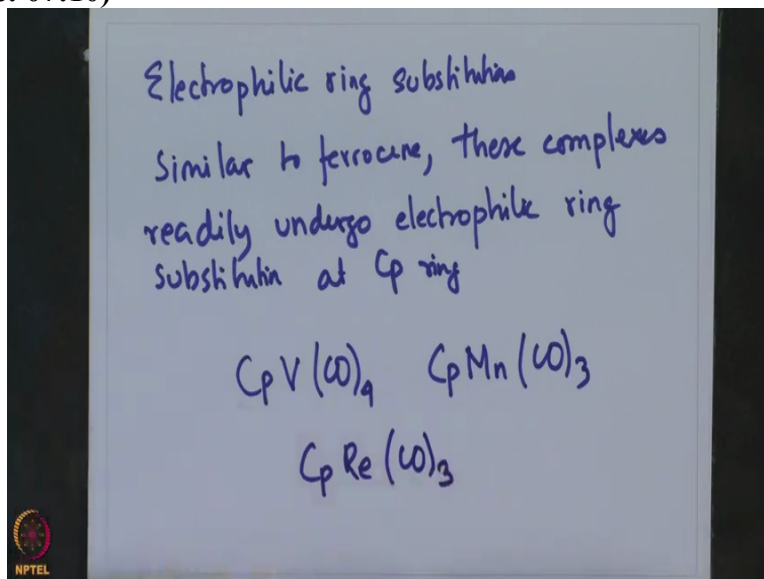 Electrophilic ring substitution
Similar to ferrocene, these complexes
readily undergo electrophilic ring
substitution at Cp ring
CpV(CO)4 CpMn(CO)3
CpRe(CO)3
NPTEL